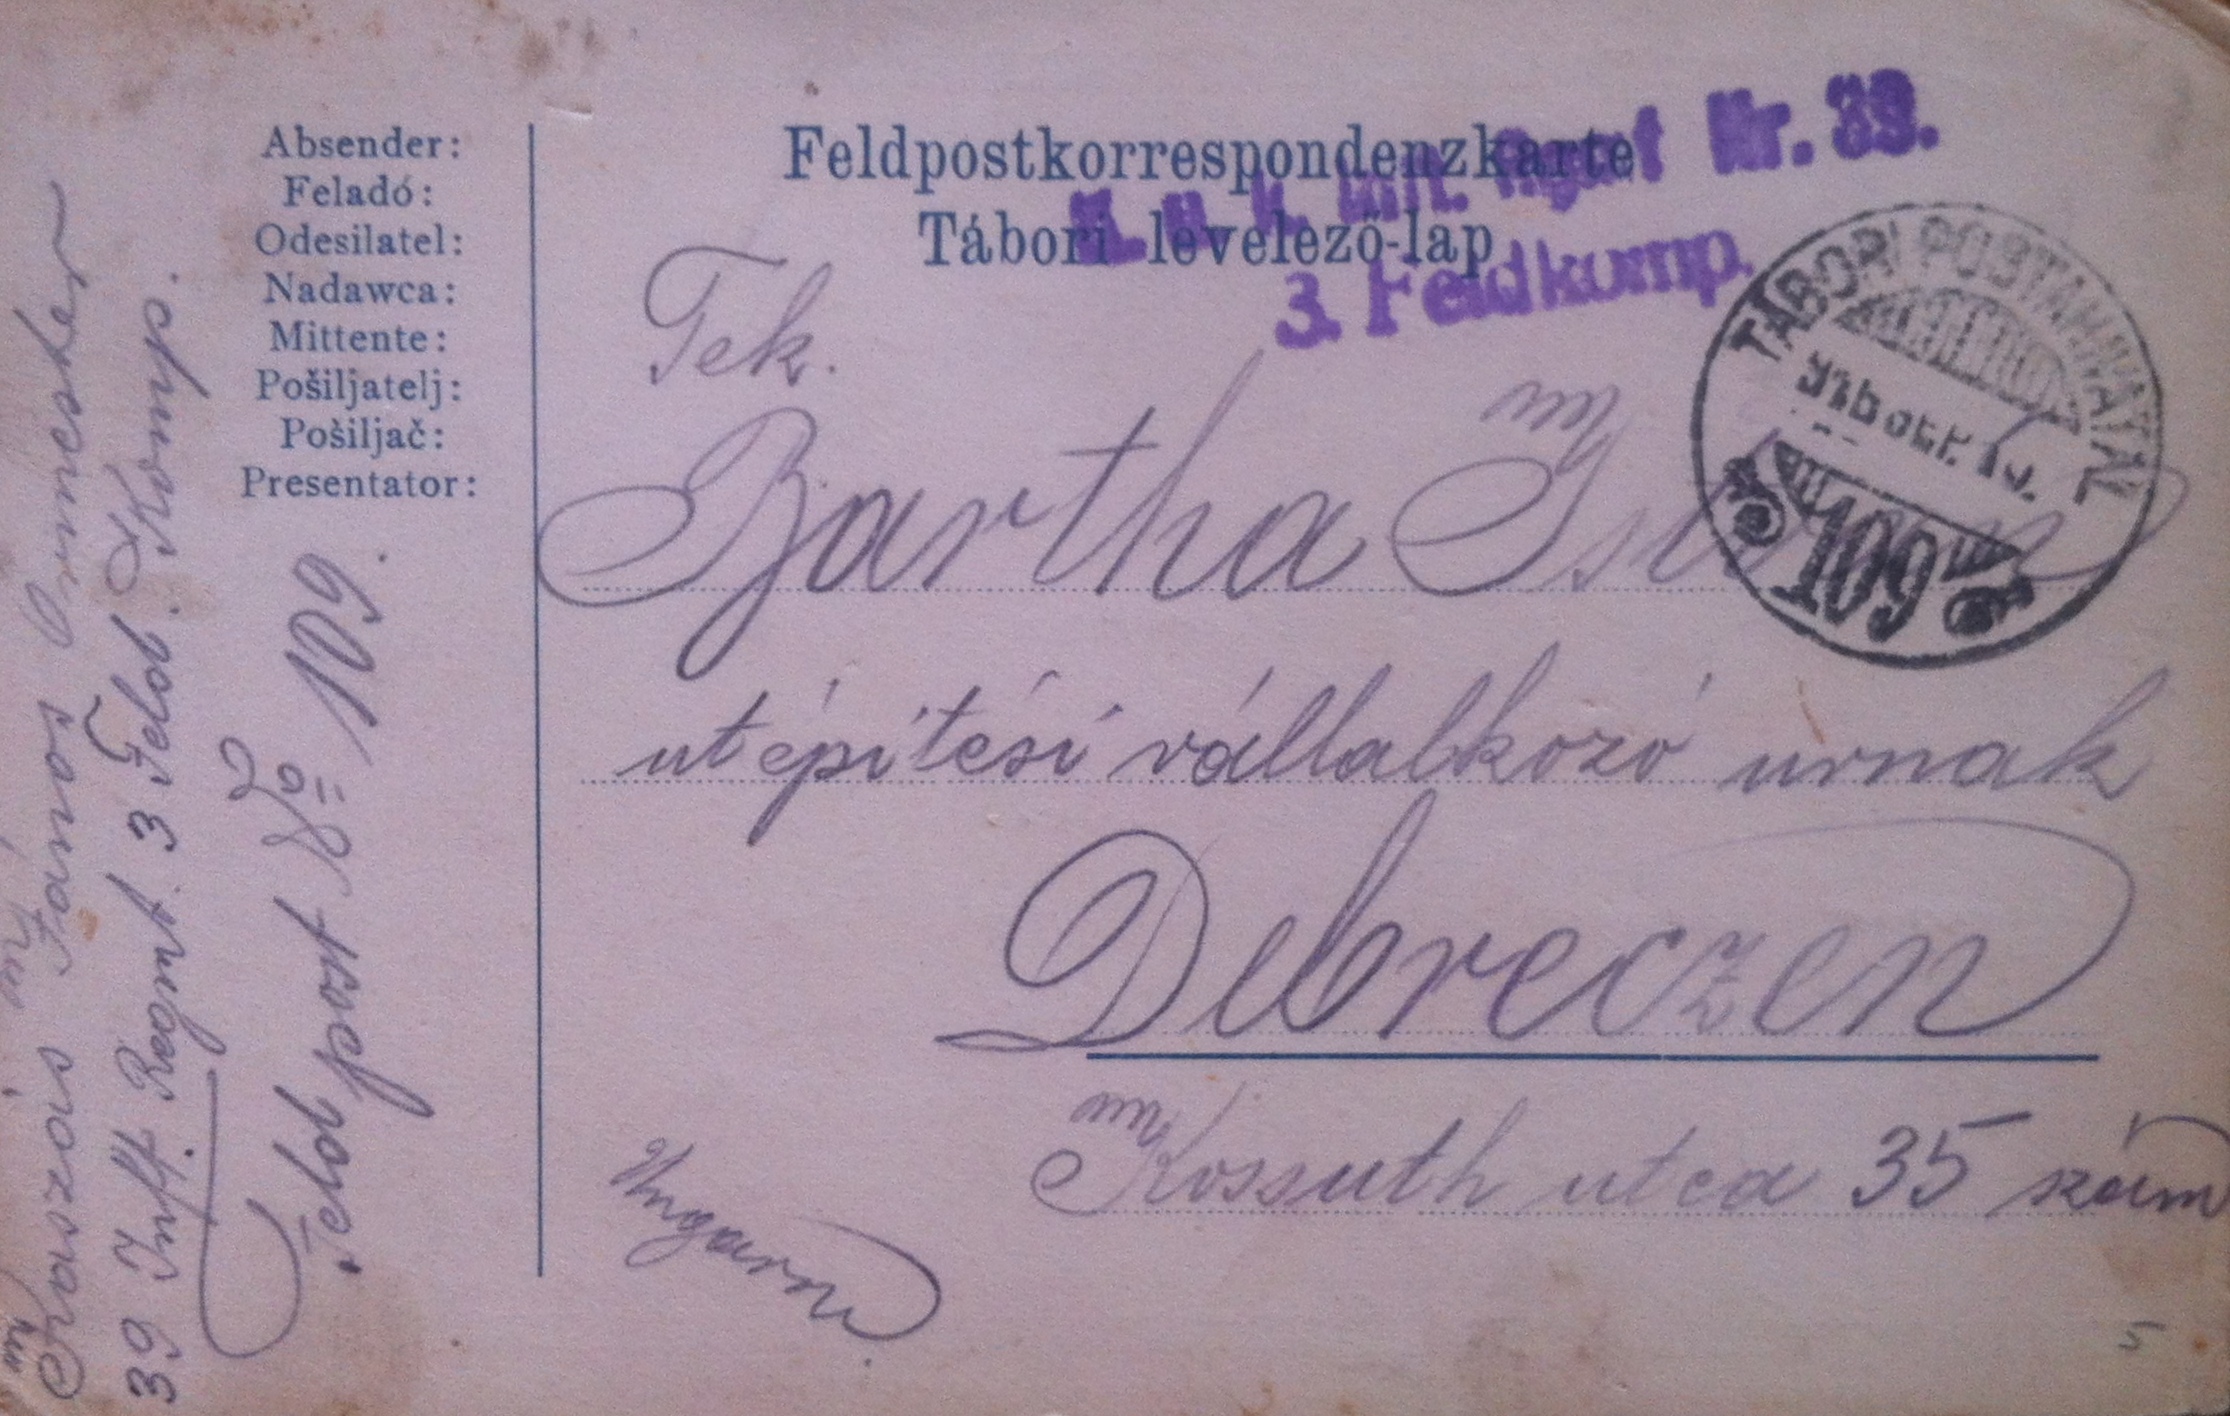 Absender:
Feladó:
Odesílatel:
Nadawca:
Mittente:
Pošiljatelj:
Pošiljač:
Presentator:
János
39 Inft. Regmt. 3 Feld. Komp.
Feldpost No 109.
Feldpostkorrespondenzkarte
Tábori levelező-lap
K. u. k. Inft. Regmt Nr. 39.
3. Feldkomp.
TÁBORI POSTAHIVATAL
109
Tek.
Bartha
utépitési vállalkozó urnak
Debreczen
Kossuth utca 35 szám
Ungarn
5